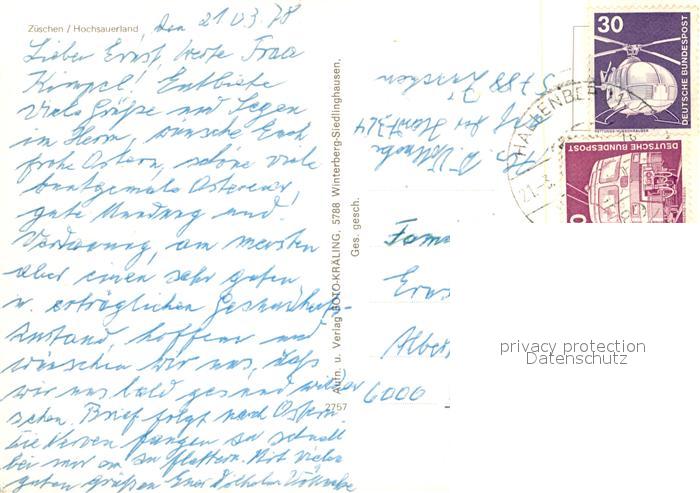 Züschen / Hochsauerland
den 21.03.78
Lieber Ernst, Werte Frau
Kimpel! Entbiete
viele Grüße und Segen
im Herrn, wünsche Euch
frohe Ostern, schöne viele
buntgemalte Ostereier,
gute und
Verdauung, am meisten
aber einen sehr guten
u. erträglichen Gesundheits-
zustand, hoffen und
wünschen wir uns, daß
wir uns bald gesund wieder
sehen. Brief folgt nach Ostern
Die Nerven fangen so schnell
bei mir an zu flattern. Mit vielen
guten Grüßen Euer Wilhelm
2757 Aufn. u. Verlag FOTO-KRÄLING, 5788 Winterberg-Siedlinghausen,
Ges. gesch.
30
DEUTSCHE BUNDESPOST
RETTUNGS-HUBSCHRAUBER
DEUTSCHE BUNDESPOST
HALLENBERG 1
21.-3.
Fam
Erns
Alber
6000
privacy protection
Datenschutz